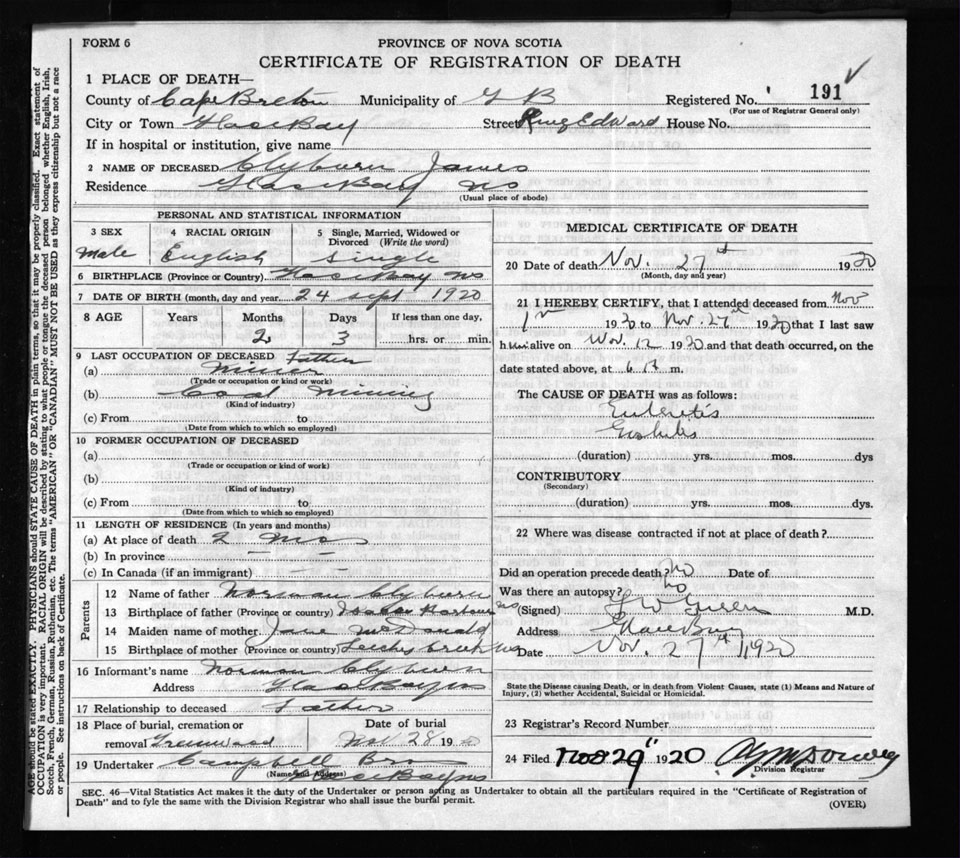 FORM 6
PROVINCE OF NOVA SCOTIA
CERTIFICATE OF REGISTRATION OF DEATH
1 PLACE OF DEATH—
County of Cape Breton Municipality of G B Registered No. 191
(For use of Registrar General only)
City or Town Glace Bay Street King Edward House No.
If in hospital or institution, give name
2 NAME OF DECEASED Clyburn James
Residence Glace Bay NS
(Usual place of abode)
PERSONAL AND STATISTICAL INFORMATION
3 SEX 4 RACIAL ORIGIN 5 Single, Married, Widowed or Divorced (Write the word)
Male English Single
6 BIRTHPLACE (Province or Country) Glace Bay NS
7 DATE OF BIRTH (month, day and year 24 Sept 1920
8 AGE Years Months Days If less than one day,
2 3 hrs. or min.
9 LAST OCCUPATION OF DECEASED Father
(a) Miner
(Trade or occupation or kind or work)
(b) Coal Mining
(Kind of industry)
(c) From to
(Date from which to which so employed)
10 FORMER OCCUPATION OF DECEASED
(a)
(Trade or occupation or kind of work)
(b)
(Kind of industry)
(c) From to
(Date from which to which so employed)
11 LENGTH OF RESIDENCE (In years and months)
(a) At place of death 2 mos
(b) In province — —
(c) In Canada (if an immigrant) — —
Parents
12 Name of father Norman Clyburn
13 Birthplace of father (Province or country) Isaacs Harbour NS
14 Maiden name of mother Jane McDonald
15 Birthplace of mother (Province or country) Leitches Creek NS
16 Informant's name Norman Clyburn
Address Glace Bay NS
17 Relationship to deceased Father
18 Place of burial, cremation or removal Greenwood Date of burial Nov 28 1920
19 Undertaker Campbell Bro
(Name and Address) Glace Bay NS
MEDICAL CERTIFICATE OF DEATH
20 Date of death Nov. 27th 1920
(Month, day and year)
21 I HEREBY CERTIFY, that I attended deceased from Nov
1920 to Nov. 27th 1920 that I last saw
him alive on Nov. 12 1920 and that death occurred, on the
date stated above, at 6 m.
The CAUSE OF DEATH was as follows:
Enteretis
(duration) yrs. mos. dys
CONTRIBUTORY
(Secondary)
(duration) yrs. mos. dys.
22 Where was disease contracted if not at place of death?
Did an operation precede death? no Date of
Was there an autopsy? no
(Signed) Green M.D.
Address Glace Bay
Date Nov. 27th 1920
State the Disease causing Death, or in death from Violent Causes, state (1) Means and Nature of Injury, (2) whether Accidental, Suicidal or Homicidal.
23 Registrar's Record Number
24 Filed Nov 29" 1920
Division Registrar
SEC. 46—Vital Statistics Act makes it the duty of the Undertaker or person acting as Undertaker to obtain all the particulars required in the "Certificate of Registration of
Death" and to fyle the same with the Division Registrar who shall issue the burial permit.
(OVER)
AGE should be stated EXACTLY. PHYSICIANS should STATE CAUSE OF DEATH in plain terms, so that it may be properly classified. Exact statement of
OCCUPATION is very important. RACIAL ORIGIN will be described by stating to what people or tongue the deceased person belonged whether English, Irish,
Scotch, French, German, Russian, Ruthenian, etc. The terms "AMERICAN" OR "CANADIAN" MUST NOT BE USED as they express citizenship but not a race
or people. See instructions on back of Certificate.